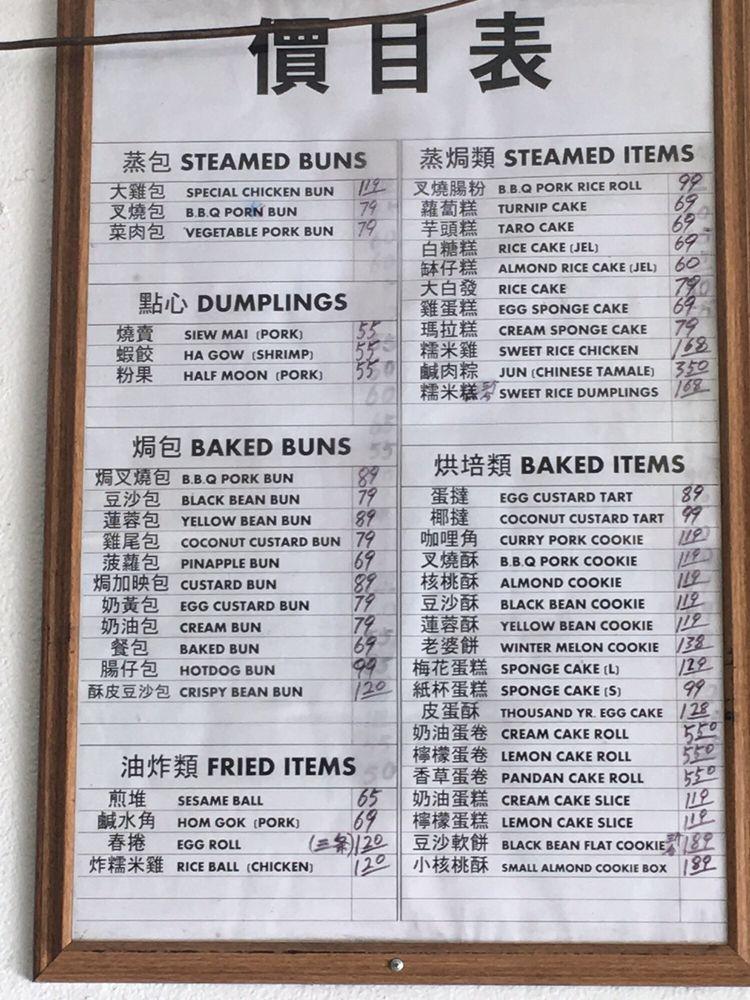 價目表
蒸包 STEAMED BUNS
大雞包 SPECIAL CHICKEN BUN 119
叉燒包 B.B.Q PORN BUN 79
菜肉包 VEGETABLE PORK BUN 79
點心 DUMPLINGS
燒賣 SIEW MAI (PORK) 55
蝦餃 HA GOW (SHRIMP) 55
粉果 HALF MOON (PORK) 55
焗包 BAKED BUNS
焗叉燒包 B.B.Q PORK BUN 89
豆沙包 BLACK BEAN BUN 79
蓮蓉包 YELLOW BEAN BUN 89
雞尾包 COCONUT CUSTARD BUN 79
菠蘿包 PINAPPLE BUN 69
焗加映包 CUSTARD BUN 89
奶黃包 EGG CUSTARD BUN 79
奶油包 CREAM BUN 79
餐包 BAKED BUN 69
腸仔包 HOTDOG BUN 99
酥皮豆沙包 CRISPY BEAN BUN 120
油炸類 FRIED ITEMS
煎堆 SESAME BALL 65
鹹水角 HOM GOK (PORK) 69
春捲 EGG ROLL (三条) 120
炸糯米雞 RICE BALL (CHICKEN) 120
蒸焗類 STEAMED ITEMS
叉燒腸粉 B.B.Q PORK RICE ROLL 99
蘿蔔糕 TURNIP CAKE 69
芋頭糕 TARO CAKE 69
白糖糕 RICE CAKE (JEL) 69
缽仔糕 ALMOND RICE CAKE (JEL) 60
大白發 RICE CAKE 79
雞蛋糕 EGG SPONGE CAKE 69
瑪拉糕 CREAM SPONGE CAKE 79
糯米雞 SWEET RICE CHICKEN 168
鹹肉粽 JUN (CHINESE TAMALE) 350
糯米糕 SWEET RICE DUMPLINGS 168
烘培類 BAKED ITEMS
蛋撻 EGG CUSTARD TART 89
椰撻 COCONUT CUSTARD TART 99
咖哩角 CURRY PORK COOKIE 119
叉燒酥 B.B.Q PORK COOKIE 119
核桃酥 ALMOND COOKIE 119
豆沙酥 BLACK BEAN COOKIE 119
蓮蓉酥 YELLOW BEAN COOKIE 119
老婆餅 WINTER MELON COOKIE 138
梅花蛋糕 SPONGE CAKE (L) 129
紙杯蛋糕 SPONGE CAKE (S) 99
皮蛋酥 THOUSAND YR. EGG CAKE 128
奶油蛋卷 CREAM CAKE ROLL 550
檸檬蛋卷 LEMON CAKE ROLL 550
香草蛋卷 PANDAN CAKE ROLL 550
奶油蛋糕 CREAM CAKE SLICE 119
檸檬蛋糕 LEMON CAKE SLICE 119
豆沙軟餅 BLACK BEAN FLAT COOKIE 189
小核桃酥 SMALL ALMOND COOKIE BOX 189